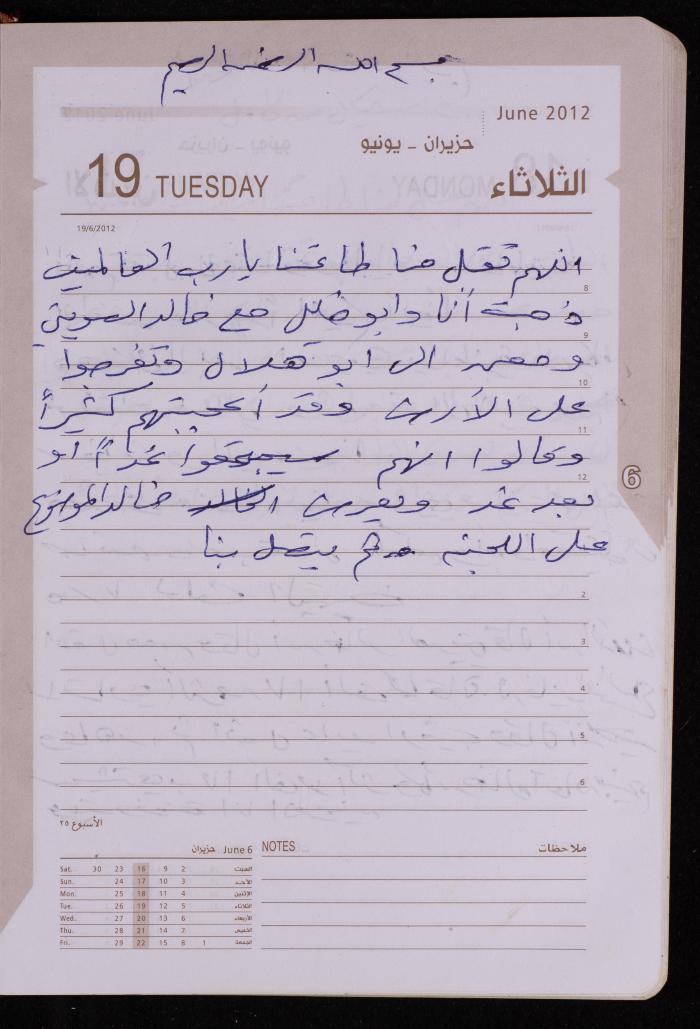 بسم الله الرحمن الرحيم
June 2012
حزيران - يونيو
19 TUESDAY
الثلاثاء
19/6/2012
اللهم تقبل منا طاعتنا يا رب العالمين
8
ذهبت أنا وابو خليل مع خالد السويتي
9
ومعهد الى ابو هلال وتفرجوا
10
على الأرض وقد أعجبتهم كثيراً
11
وقالوا انهم سيجتمعوا غداً أو
12
6
بعد غد ويعرض خالد الموضوع
على اللجنة ثم يتصل بنا
2
3
4
5
6
الأسبوع ٢٥
June 6 حزيران
NOTES
ملاحظات
Sat. 30 23 16 9 2 السبت
Sun. 24 17 10 3 الأحد
Mon. 25 18 11 4 الإثنين
Tue. 26 19 12 5 الثلاثاء
Wed. 27 20 13 6 الأربعاء
Thu. 28 21 14 7 الخميس
Fri. 29 22 15 8 1 الجمعة